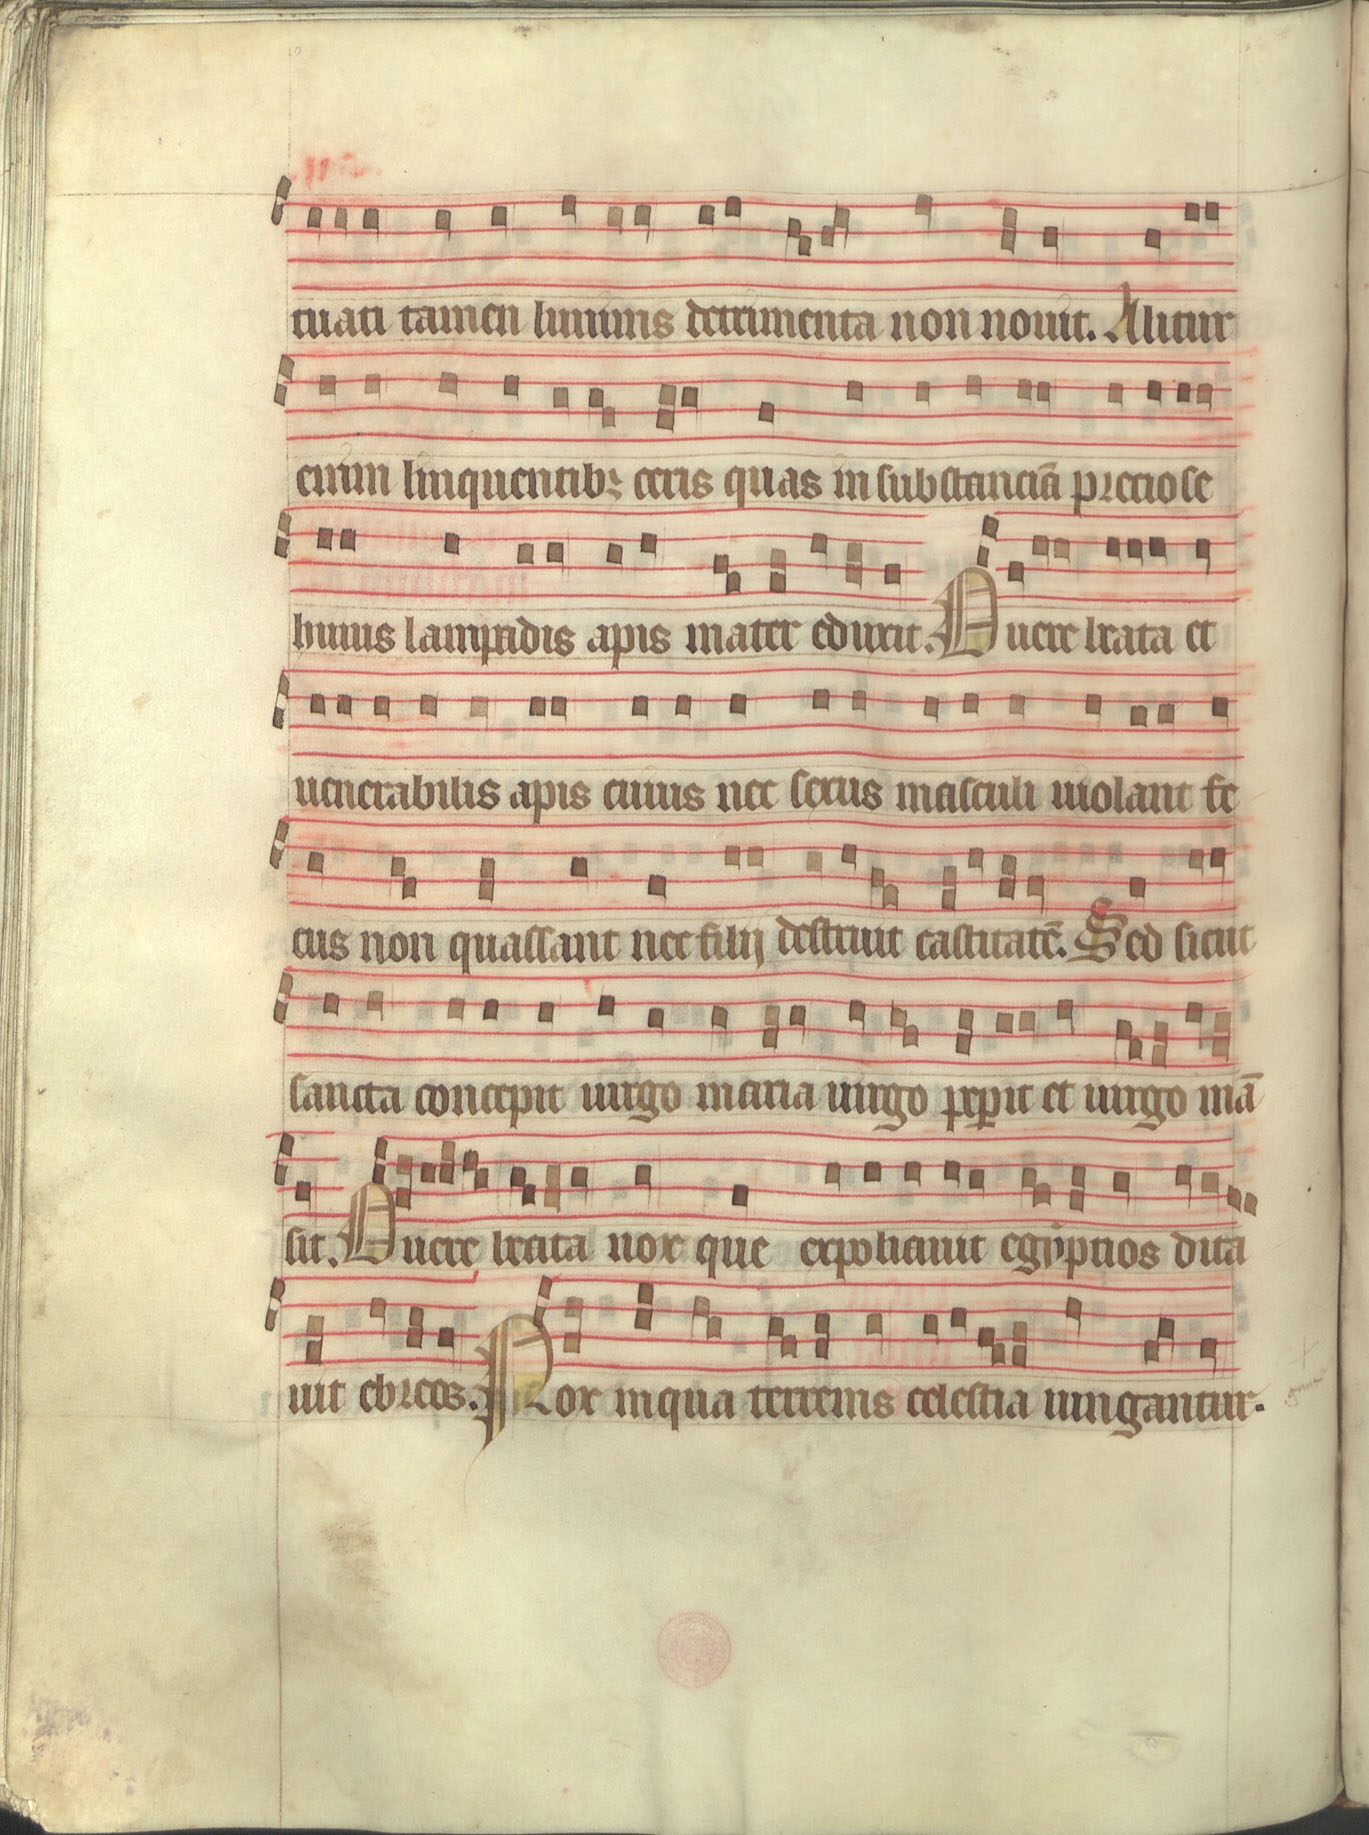 tuati tamen luminis detrimenta non nouit. Alitur
enim linquentibꝫ ceris quas in substanciā preciose
huius lampadis apis mater eduxit. O uere beata et
uenerabilis apis cuius nec sexus masculi uiolant fe
tus non quassant nec filij destruut castitatē. Sed sicut
sancta concepit uirgo maria uirgo peꝑit et uirgo mā
sit. O uere beata nox que expoliauit egyptios dita
uit ebreos. Nox in qua terrenis celestia iungantur.